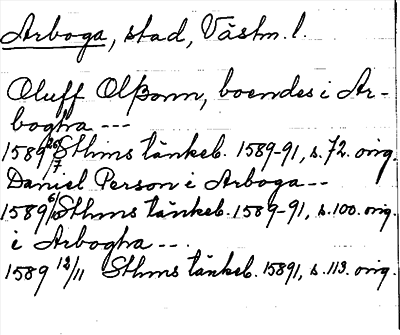 Arboga, stad, Västm. l.
Oluff Olßonn, boendes i Ar-
bogha ---
1589 26/7. Sthms tänkeb. 1589-91, s. 72. orig.
Daniel Person i Arboga --
1589 6/10 Sthms tänkeb. 1589-91, s. 100. orig.
i Arbogha --.
1589 12/11 Sthms tänkeb. 15891, s. 113. orig.